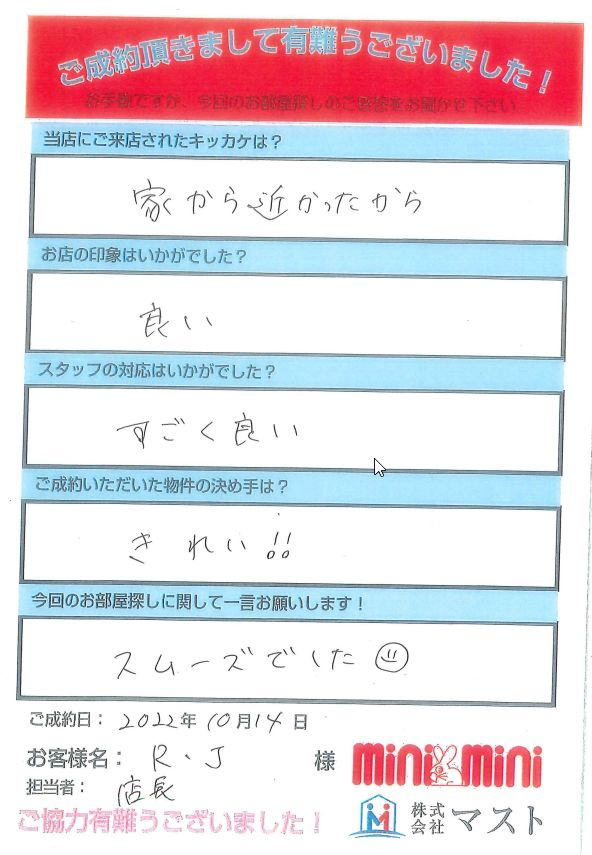 ご成約頂きまして有難うございました！
お手数ですが、今回のお部屋探しのご感想をお聞かせ下さい。
当店にご来店されたキッカケは？
家から近かったから
お店の印象はいかがでした？
良い
スタッフの対応はいかがでした？
すごく良い
ご成約いただいた物件の決め手は？
きれい!!
今回のお部屋探しに関して一言お願いします！
スムーズでした☺
ご成約日： 2022年 10月 14日
お客様名： R・J 様
担当者： 店長
ご協力有難うございました！
mini mini
株式会社 マスト